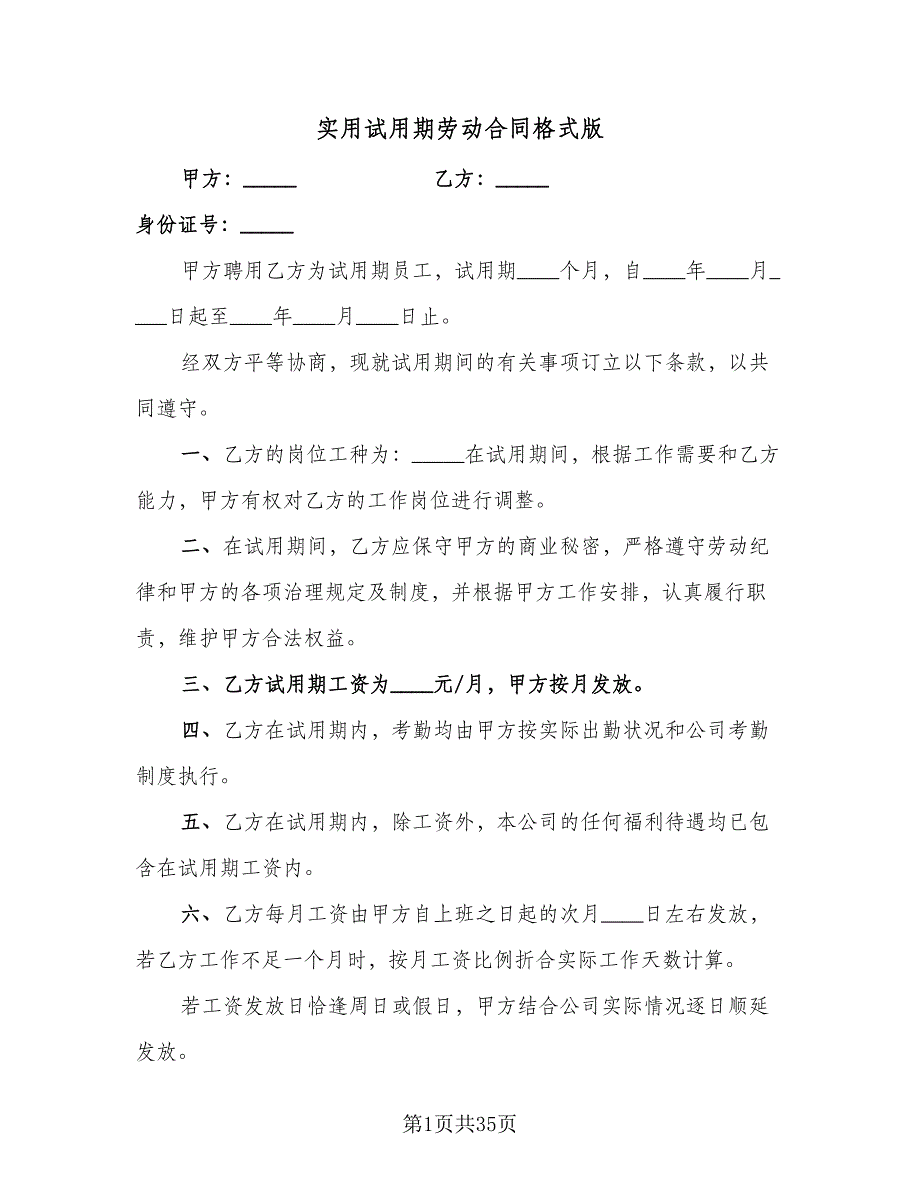 实用试用期劳动合同格式版
甲方：_____ 乙方：_____
身份证号：_____
甲方聘用乙方为试用期员工，试用期____个月，自____年____月_
___日起至____年____月____日止。
经双方平等协商，现就试用期间的有关事项订立以下条款，以共
同遵守。
一、乙方的岗位工种为：_____在试用期间，根据工作需要和乙方
能力，甲方有权对乙方的工作岗位进行调整。
二、在试用期间，乙方应保守甲方的商业秘密，严格遵守劳动纪
律和甲方的各项治理规定及制度，并根据甲方工作安排，认真履行职
责，维护甲方合法权益。
三、乙方试用期工资为____元/月，甲方按月发放。
四、乙方在试用期内，考勤均由甲方按实际出勤状况和公司考勤
制度执行。
五、乙方在试用期内，除工资外，本公司的任何福利待遇均已包
含在试用期工资内。
六、乙方每月工资由甲方自上班之日起的次月____日左右发放，
若乙方工作不足一个月时，按月工资比例折合实际工作天数计算。
若工资发放日恰逢周日或假日，甲方结合公司实际情况逐日顺延
发放。
第1页共35页